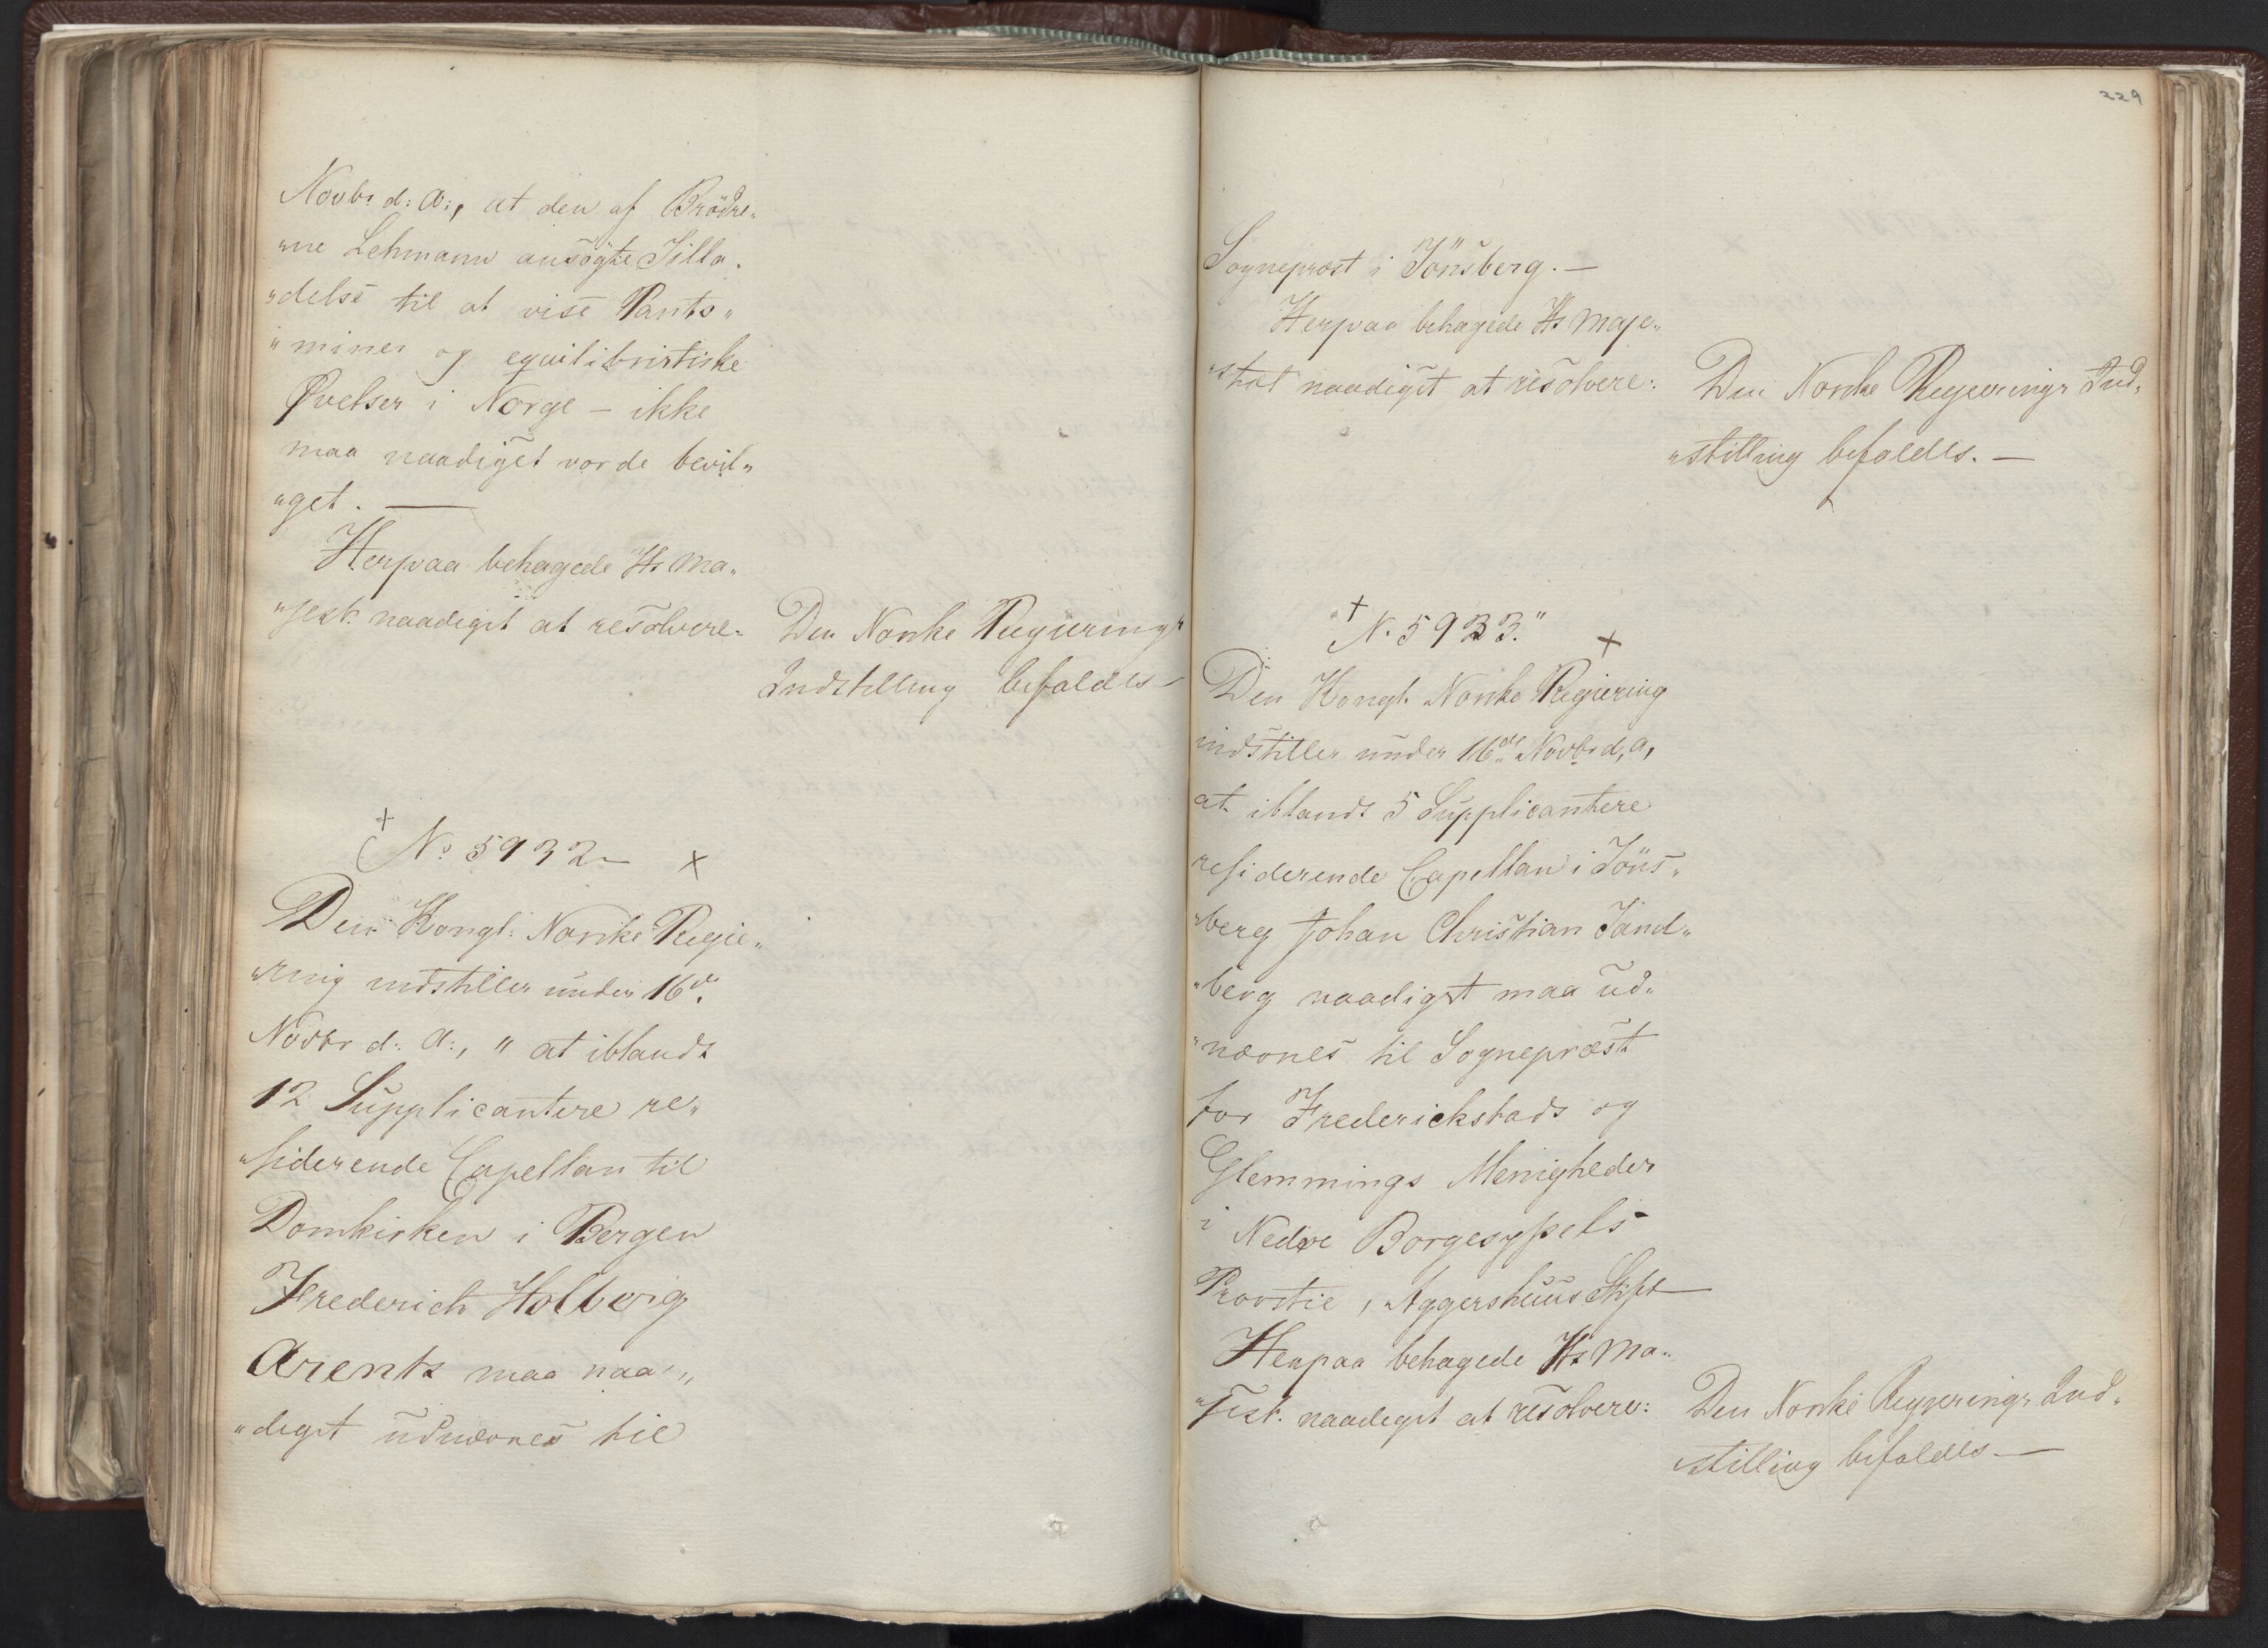 Novbr d: A:, at den af Brödre„
„ne Lehmann ansögte Tilla„
„delse til at vise Panto„
„miner og equilibristiske
Øvelser i Norge – ikke
maa naadigst vorde bevil„
„get. —
Herpaa behagede Hs Ma„
„jest: naadigst at resolvere: Den Norske Regierings
Indstilling bifaldes –
+
No 5932 – x
Den Kongl: Norske Regie„
„ring indstiller under 16de
Novbr d: A:, " at iblandt
12 Supplicantere re„
„siderende Capellan til
Domkirken i Bergen
Frederich Holberg
Arentz maa naa„
„digst udnævnes til
229
Sognepræst i Tönsberg. –
Herpaa behagede Hs Maje„
„stæt naadigst at resolvere: Den Norske Regierings Ind„
„stilling bifaldes. –
+
N. 5933." x
Den Kongl. Norske Regiering
indstiller under 16de Novbr d, A,
at iblandt 5 Supplicantere
residerende Capellan i Töns„
„berg Johan Christian Tand„
„berg naadigst maa ud„
„nævnes til Sognepræst
for Frederickstads og
Glemmings Menigheder
i Nedre Borgesyssels
Provstie, Aggershuus Stift –
Herpaa behagede Hs Ma„
„jest. naadigst at resolvere: Den Norske Regierings Ind„
stilling bifaldes –